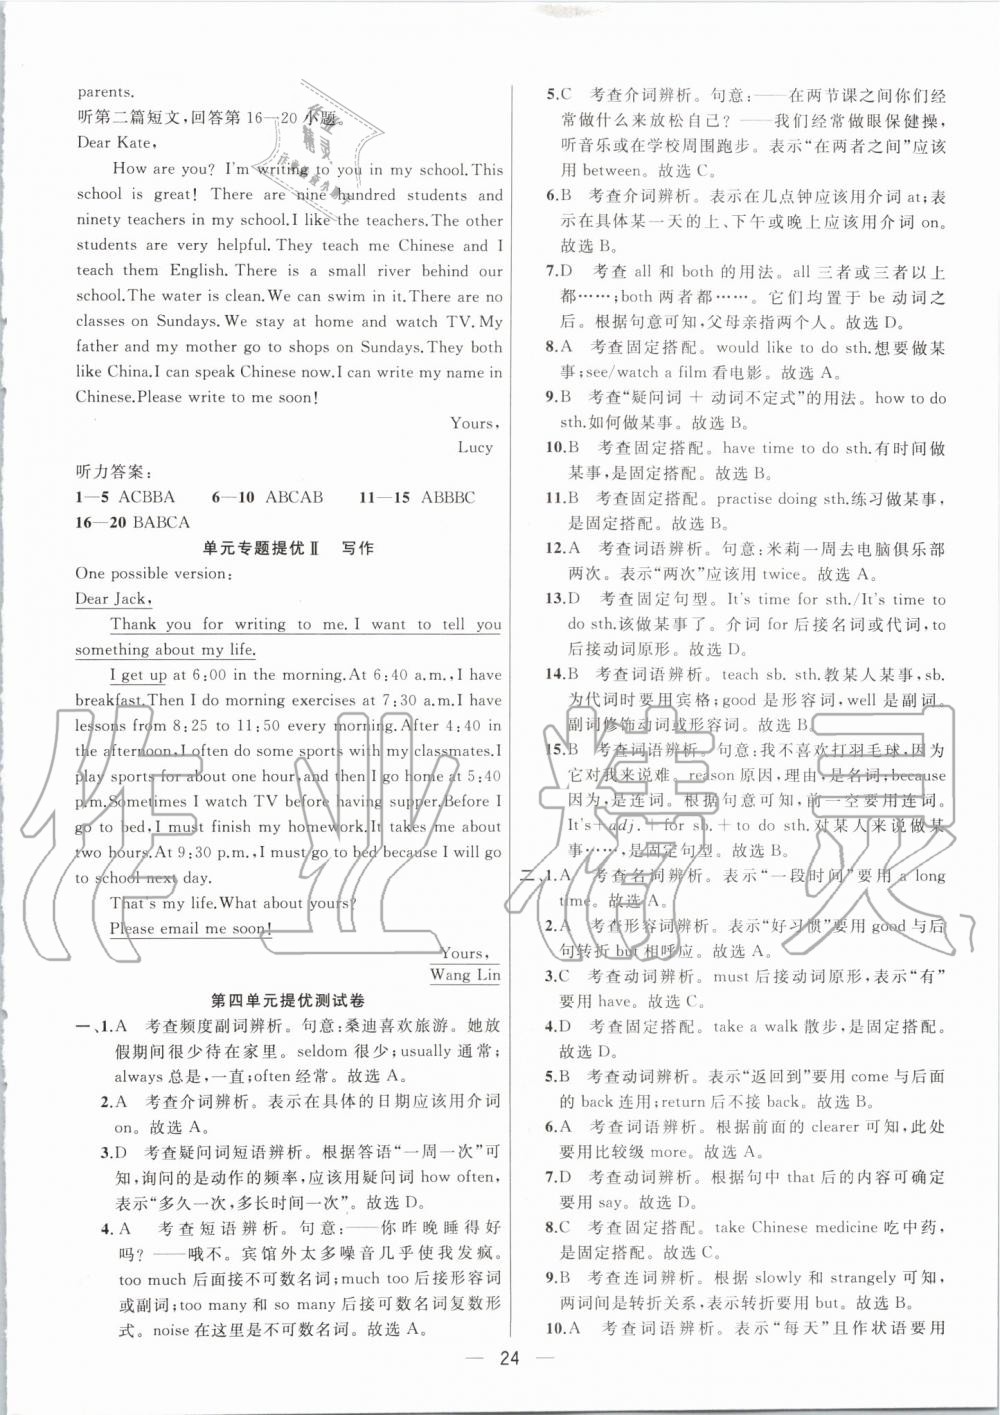 parents.
听第二篇短文,回答第16—20小题。
Dear Kate,
How are you? I'm writing to you in my school.This
school is great! There are nine hundred students and
ninety teachers in my school.I like the teachers.The other
students are very helpful.They teach me Chinese and I
teach them English. There is a small river behind our
school.The water is clean.We can swim in it.There are no
classes on Sundays. We stay at home and watch TV. My
father and my mother go to shops on Sundays. They both
like China.I can speak Chinese now.I can write my name in
Chinese.Please write to me soon!
Yours,
Lucy
听力答案:
1—5 ACBBA 6—10 ABCAB 11—15 ABBBC
16—20 BABCA
单元专题提优Ⅱ 写作
One possible version:
Dear Jack,
Thank you for writing to me.I want to tell you
something about my life.
I get up at 6:00 in the morning.At 6:40 a.m.,I have
breakfast.Then I do morning exercises at 7:30 a.m.I have
lessons from 8:25 to 11:50 every morning.After 4:40 in
the afternoon,I often do some sports with my classmates.I
play sports for about one hour,and then I go home at 5:40
p.m.Sometimes I watch TV before having supper.Before I
go to bed,I must finish my homework.It takes me about
two hours.At 9:30 p.m.,I must go to bed because I will go
to school next day.
That's my life.What about yours?
Please email me soon!
Yours,
Wang Lin
第四单元提优测试卷
一、1.A 考查频度副词辨析。句意:桑迪喜欢旅游。她放
假期间很少待在家里。seldom 很少;usually 通常;
always 总是,一直;often 经常。故选 A。
2.A 考查介词辨析。表示在具体的日期应该用介词
on。故选 A。
3.D 考查疑问词短语辨析。根据答语“一周一次”可
知,询问的是动作的频率,应该用疑问词 how often,
表示“多久一次,多长时间一次”。故选 D。
4.A 考查短语辨析。句意:——你昨晚睡得好
吗?——哦不。宾馆外太多噪音几乎使我发疯。
too much 后面接不可数名词;much too 后接形容词
或副词;too many 和 so many 后接可数名词复数形
式。noise 在这里是不可数名词。故选 A。
5.C 考查介词辨析。句意:——在两节课之间你们经
常做什么来放松自己?——我们经常做眼保健操,
听音乐或在学校周围跑步。表示“在两者之间”应该
用 between。故选 C。
6.B 考查介词辨析。表示在几点钟应该用介词 at;表
示在具体某一天的上、下午或晚上应该用介词 on。
故选 B。
7.D 考查 all 和 both 的用法。all 三者或三者以上
都……;both 两者都……。它们均置于 be 动词之
后。根据句意可知,父母亲指两个人。故选 D。
8.A 考查固定搭配。would like to do sth.想要做某
事;see/watch a film 看电影。故选 A。
9.B 考查“疑问词 + 动词不定式”的用法。how to do
sth.如何做某事。故选 B。
10.B 考查固定搭配。have time to do sth.有时间做
某事,是固定搭配。故选 B。
11.B 考查固定搭配。practise doing sth.练习做某事,
是固定搭配。故选 B。
12.A 考查词语辨析。句意:米莉一周去电脑俱乐部
两次。表示“两次”应该用 twice。故选 A。
13.D 考查固定句型。It's time for sth./It's time to
do sth.该做某事了。介词 for 后接名词或代词,to
后接动词原形。故选 D。
14.B 考查词语辨析。teach sb. sth.教某人某事,sb.
为代词时要用宾格;good 是形容词,well 是副词。
副词修饰动词或形容词。故选 B。
15.B 考查词语辨析。句意:我不喜欢打羽毛球,因为
它对我来说难。reason 原因,理由,是名词;because
因为,是连词。根据句意可知,前一空要用连词。
It's+adj.+for sb.+to do sth.对某人来说做某
事……,是固定句型。故选 B。
二、1.A 考查名词辨析。表示“一段时间”要用 a long
time。故选 A。
2.A 考查形容词辨析。表示“好习惯”要用 good 与后
句转折 but 相呼应。故选 A。
3.C 考查动词辨析。must 后接动词原形,表示“有”
要用 have。故选 C。
4.D 考查固定搭配。take a walk 散步,是固定搭配。
故选 D。
5.B 考查动词辨析。表示“返回到”要用 come 与后面
的 back 连用;return 后不接 back。故选 B。
6.A 考查词语辨析。根据前面的 clearer 可知,此处
要用比较级 more。故选 A。
7.D 考查动词辨析。根据句中 that 后的内容可确定
要用 say。故选 D。
8.C 考查固定搭配。take Chinese medicine 吃中药,
是固定搭配。故选 C。
9.B 考查连词辨析。根据 slowly 和 strangely 可知,
两词间是转折关系,表示转折要用 but。故选 B。
10.A 考查词语辨析。表示“每天”且作状语要用
— 24 —
作业精灵